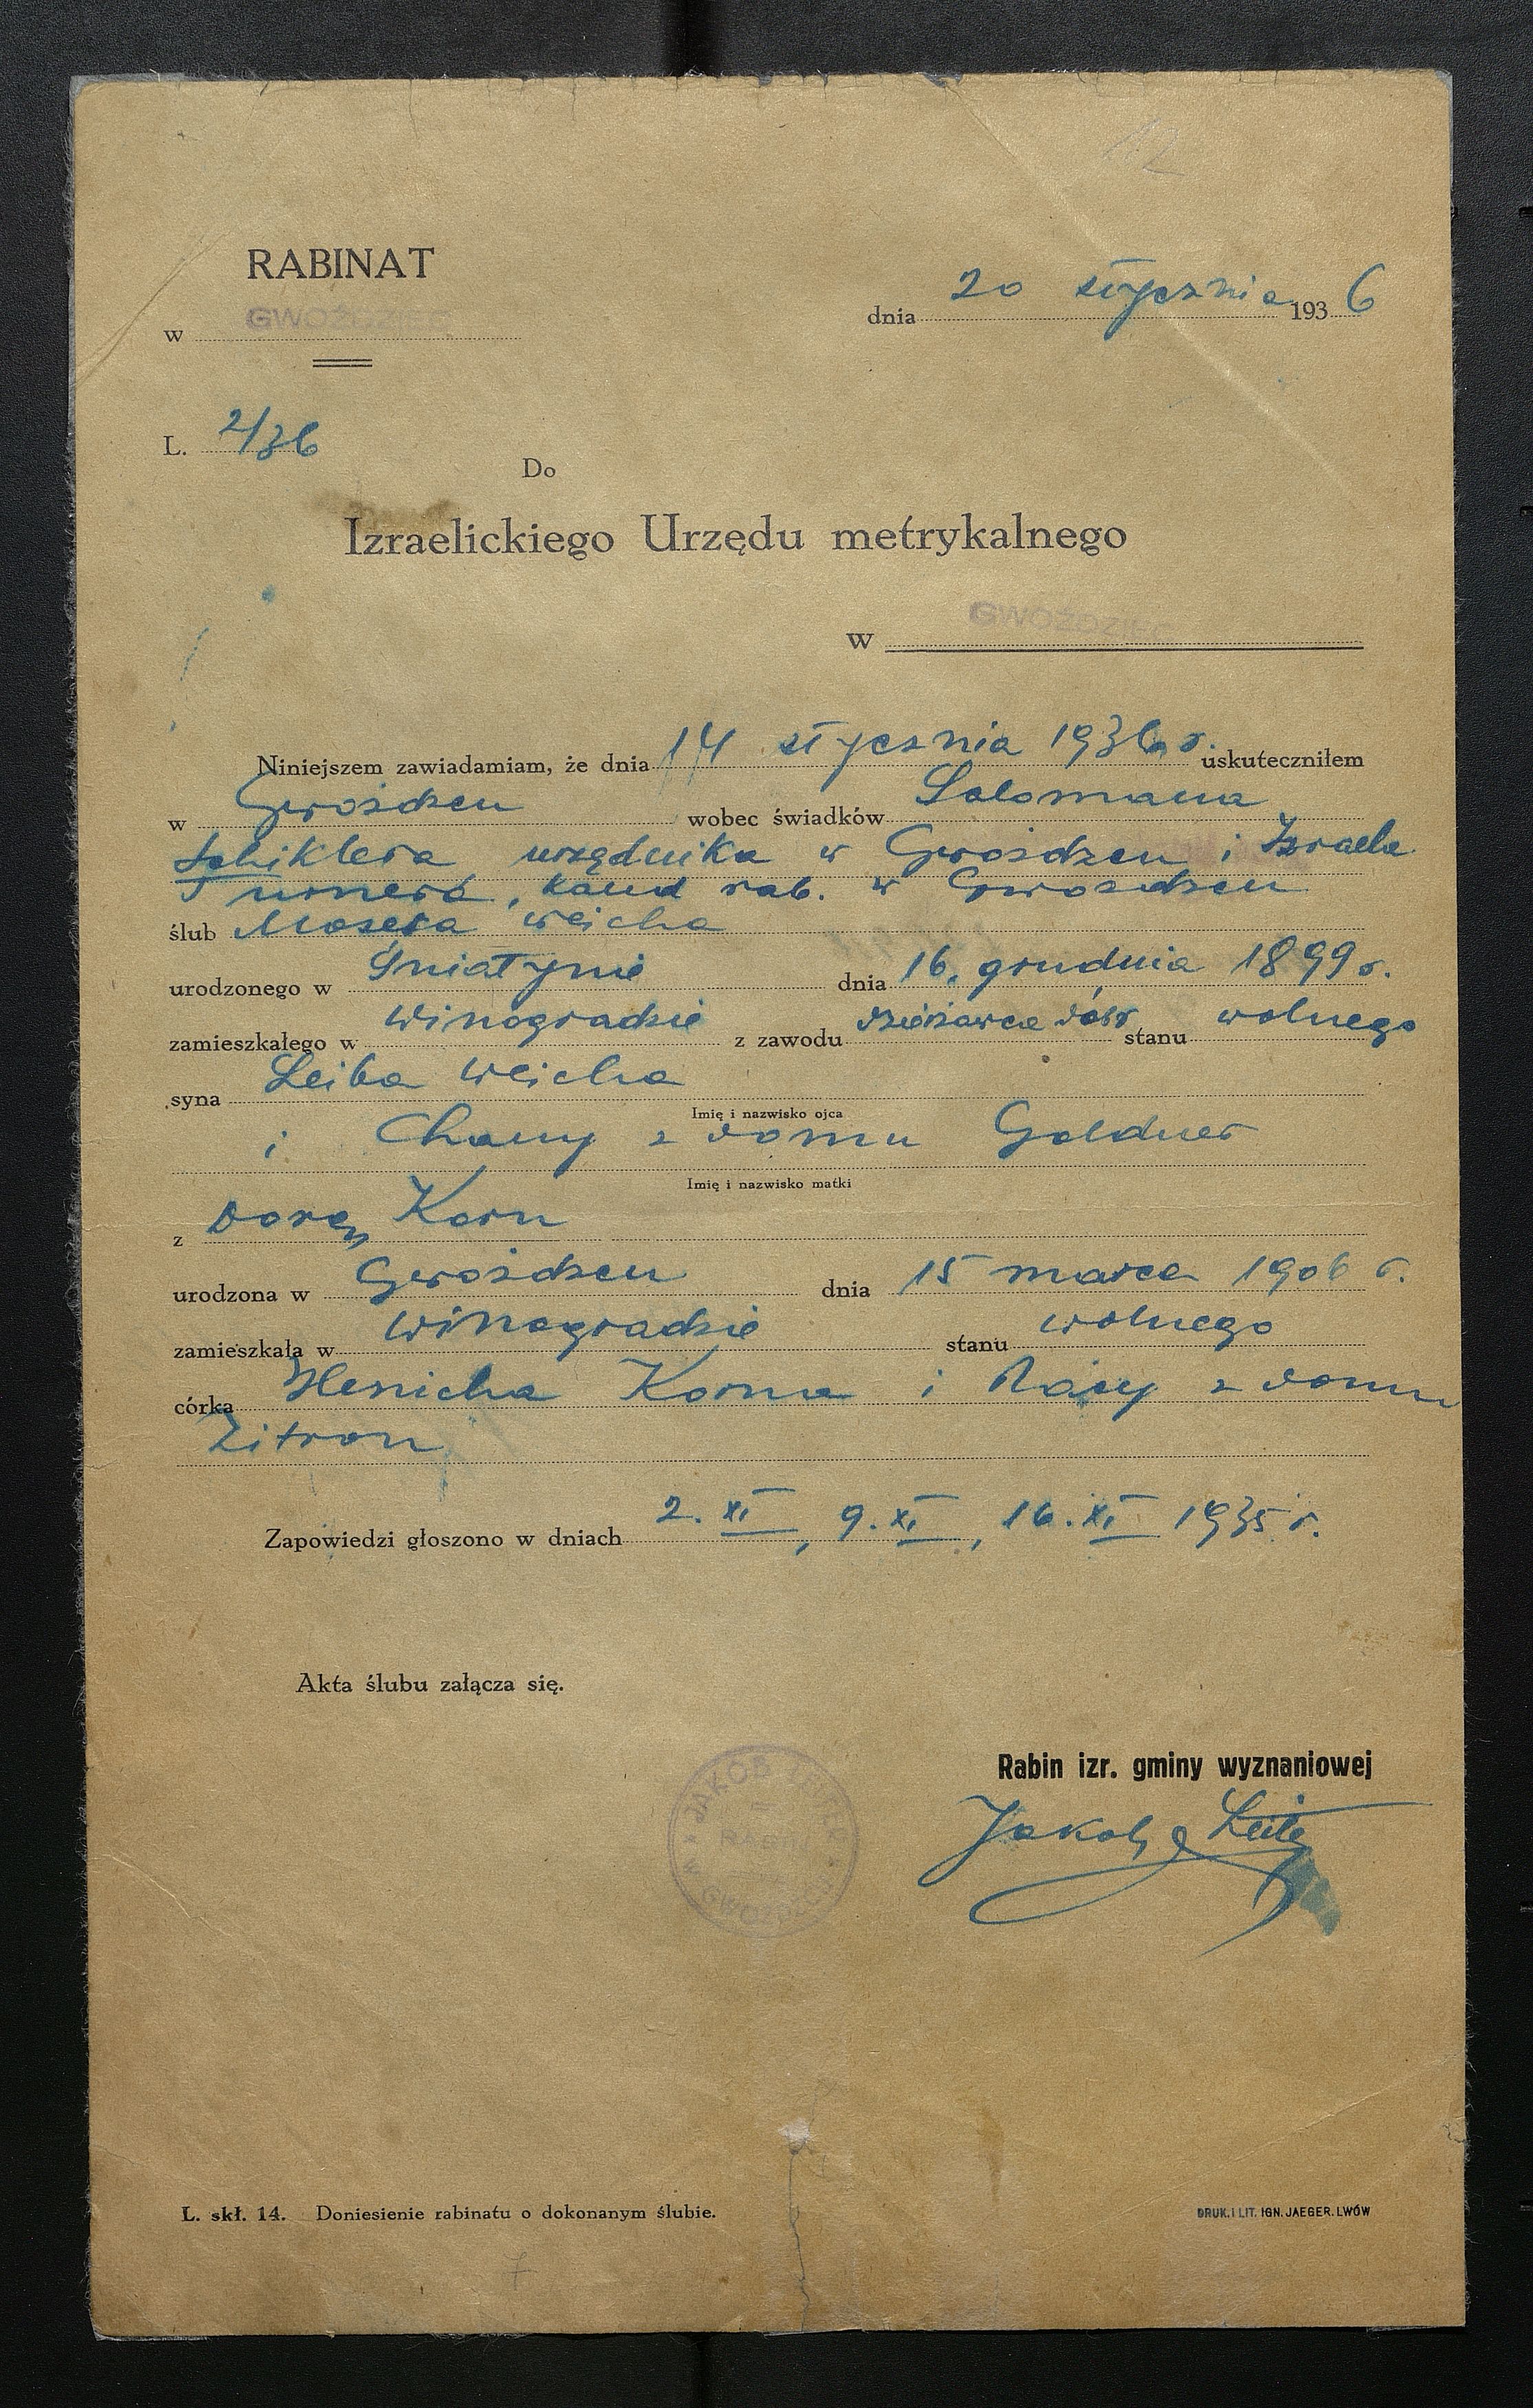 12
RABINAT
w GWOŹDZIEC
dnia 20 stycznia 1936
L. 2/36
Do
Izraelickiego Urzędu metrykalnego
w GWOŹDZIEC
Niniejszem zawiadamiam, że dnia 14 stycznia 1936 r. uskuteczniłem
w Gwoźdzcu wobec świadków Salomana
Schiklera urzędnika w Gwoźdzcu i Izraela
kand rab. w Gwoźdzcu
ślub Mosesa Weicha
urodzonego w Śniatynie dnia 16. grudnia 1899 r.
zamieszkałego w Winogradzie z zawodu dzierżawca dóbr stanu wolnego
syna Leiba Weicha
Imię i nazwisko ojca
i Chany z domu Goldner
Imię i nazwisko matki
z Dorą Korn
urodzona w Gwoźdzcu dnia 15 marca 1906 r.
zamieszkała w Winogradzie stanu wolnego
córka Henicha Korna i z domu
Zitron
Zapowiedzi głoszono w dniach 2. XI, 9. XI, 16. XI 1935 r.
Akta ślubu załącza się.
Rabin izr. gminy wyznaniowej
JAKÓB
RABIN
W GWOŹDZCU
Jakob
L. skł. 14. Doniesienie rabinatu o dokonanym ślubie.
DRUK. I LIT. IGN. JAEGER. LWÓW
7